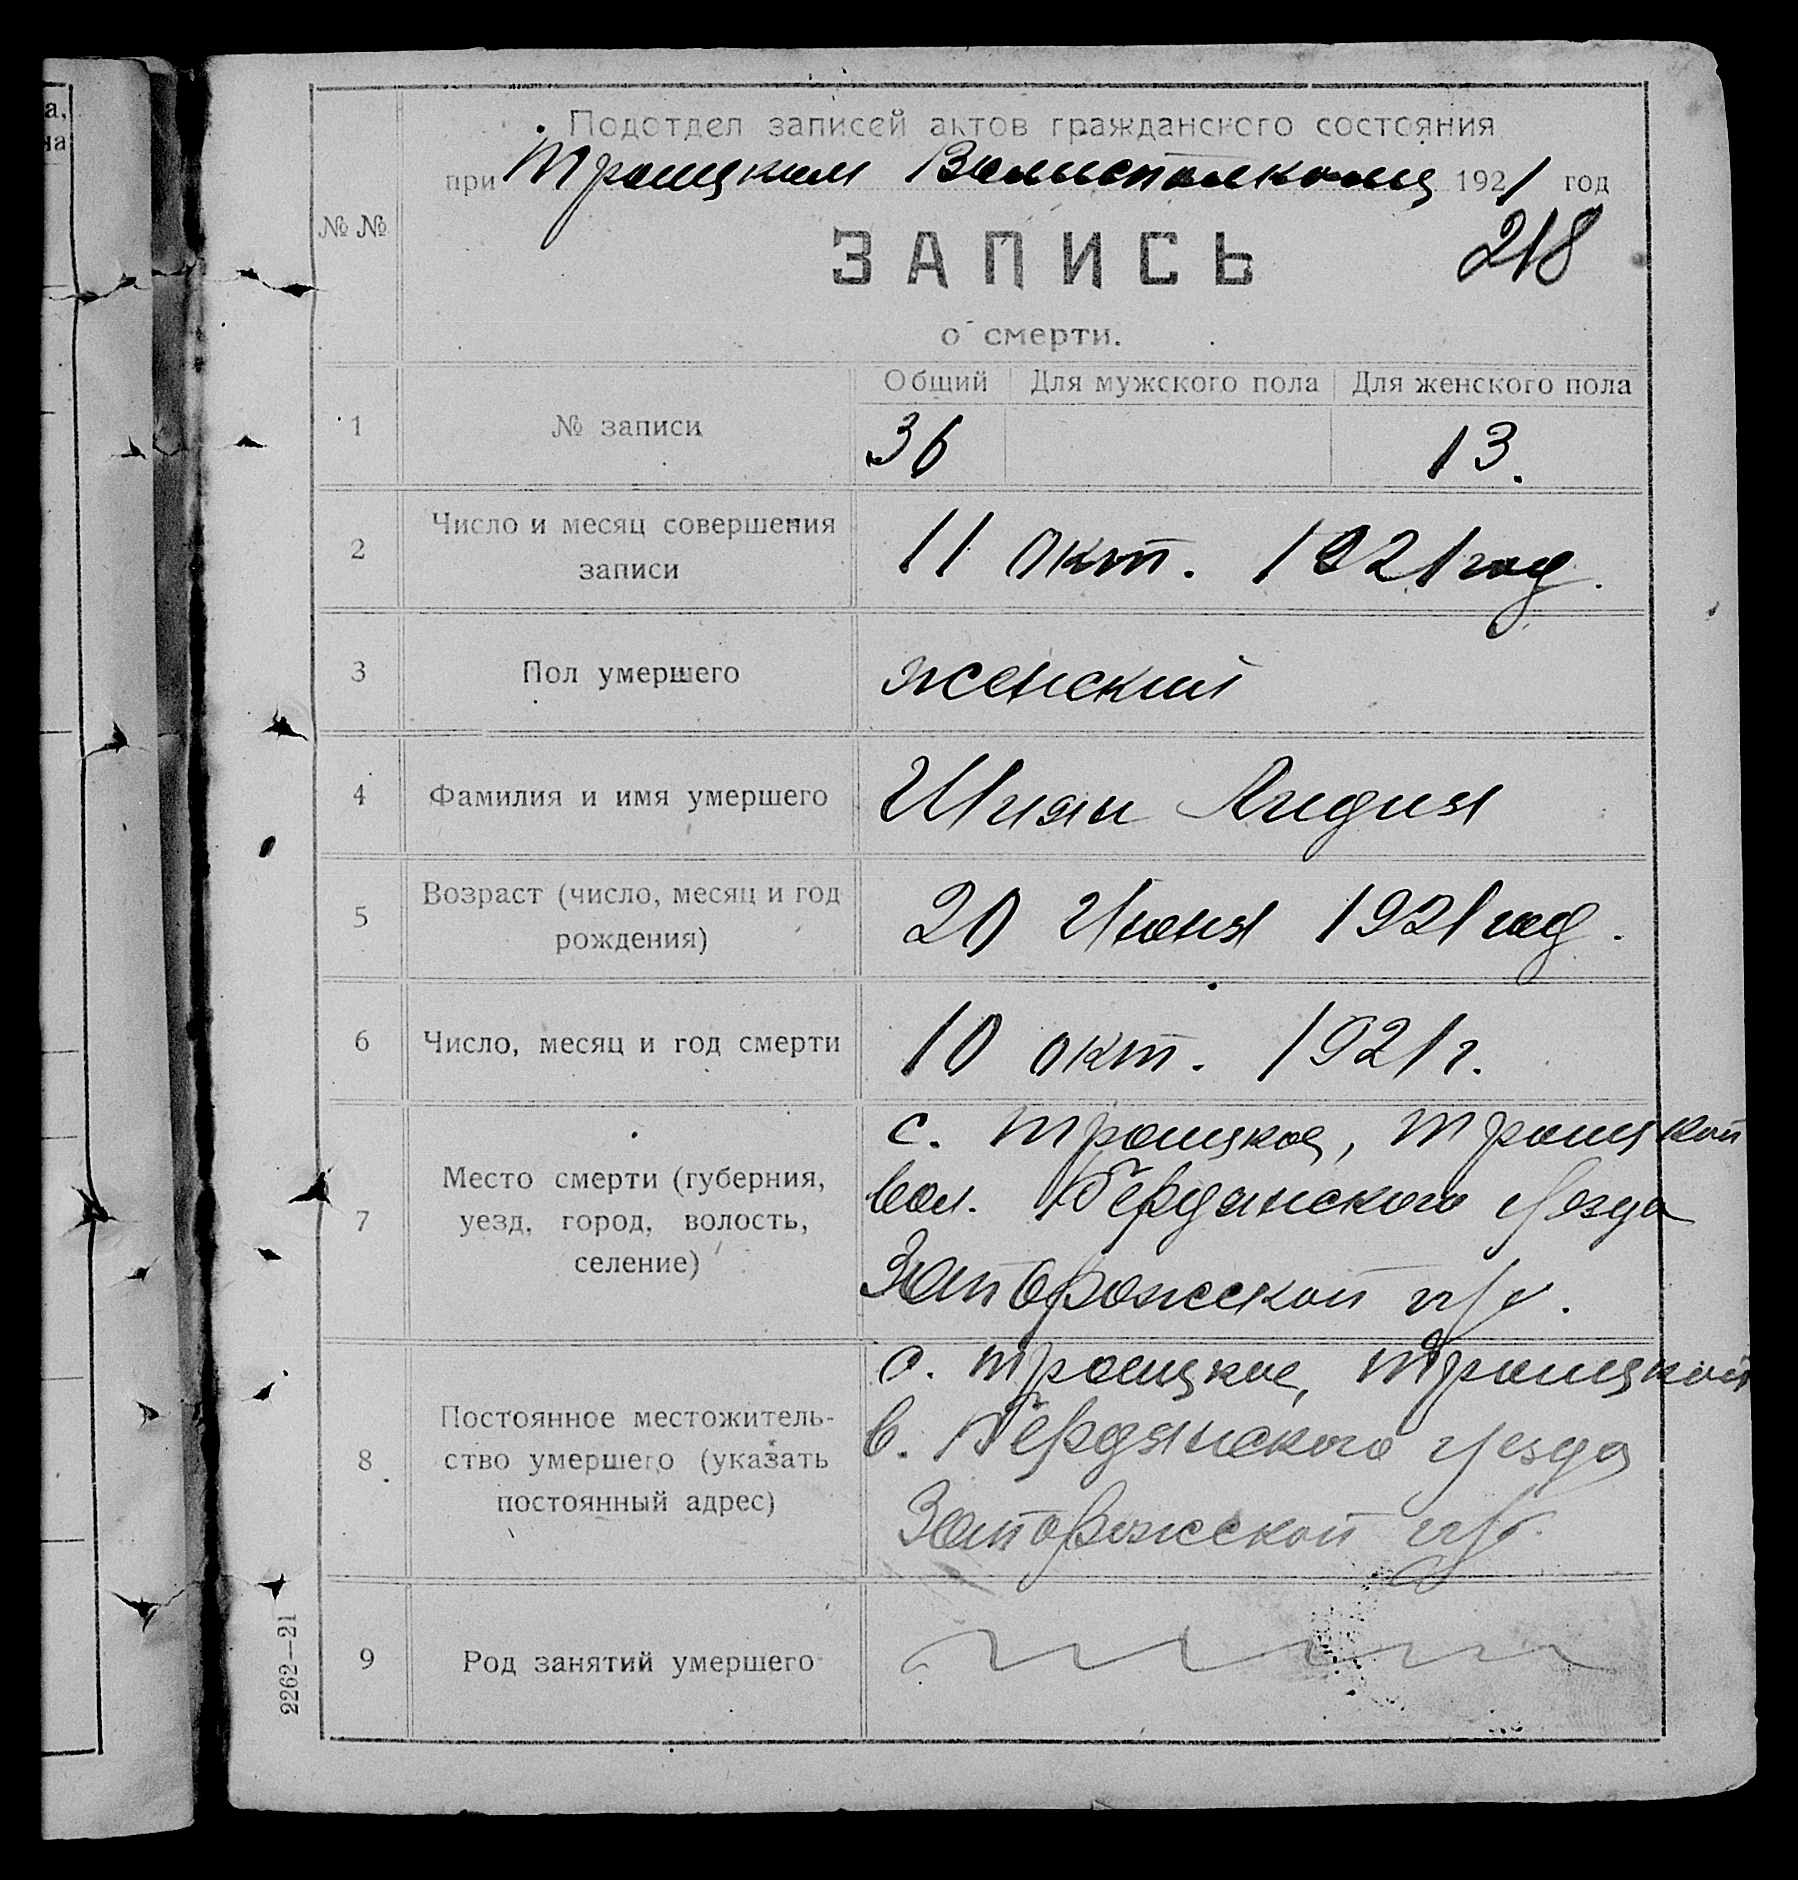 а,
на
Подотдел записей актов гражданского состояния
при Троицком Волисполкоме 1921 год
№ №
218
ЗАПИСЬ
о смерти.
Общий Для мужского пола Для женского пола
1 № записи 36 13.
2 Число и месяц совершения записи 11 окт. 1921 год.
3 Пол умершего женский
4 Фамилия и имя умершего Лидия
5 Возраст (число, месяц и год рождения) 20 Июня 1921 год.
6 Число, месяц и год смерти 10 окт. 1921 г.
7 Место смерти (губерния, уезд, город, волость, селение)
с. Троицкое, Троицкой
вол. Бердянского уезда
Запорожской губ.
8 Постоянное местожитель-
ство умершего (указать
постоянный адрес)
с. Троицкое, Троицкой
в. Бердянского уезда
Запорожской губ.
9 Род занятий умершего
2262—21